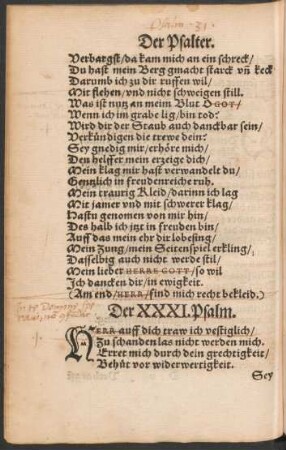 Psalm 31.
Der Psalter.
Verbargst/da kam mich an ein schreck/
Du hast mein Berg gmacht starck vñ keck
Darumb ich zu dir ruffen wil/
Mit flehen/vnd nicht schweigen still.
Was ist nutz an meim Blut O GOT/
Wenn ich im grabe lig/bin tod?
Wird dir der Staub auch danckbar sein/
Verkündigen die trewe dein?
Sey gnedig mir/erhöre mich/
Den helffer mein erzeige dich/
Mein klag mir hast verwandelt du/
Gentzlich in freudenreiche ruh,
Mein traurig Kleid/darinn ich lag
Mit jamer vnd mit schwerer klag/
Hastu genomen von mir hin/
Des halb ich jtzt in freuden bin/
Auff das mein ehr dir lobesing/
Mein Zung/mein Seitenspiel erkling/
Dasselbig auch nicht werde stil/
Mein lieber HERRE GOTT/so wil
Ich dancken dir/in ewigkeit.
(Am end/HERR/find mich recht bekleid.)
Der XXXI. Psalm.
HERR auff dich traw ich vestiglich/
Zu schanden las nicht werden mich.
Erret mich durch dein grechtigkeit/
Behüt vor widerwertigkeit.
Sey